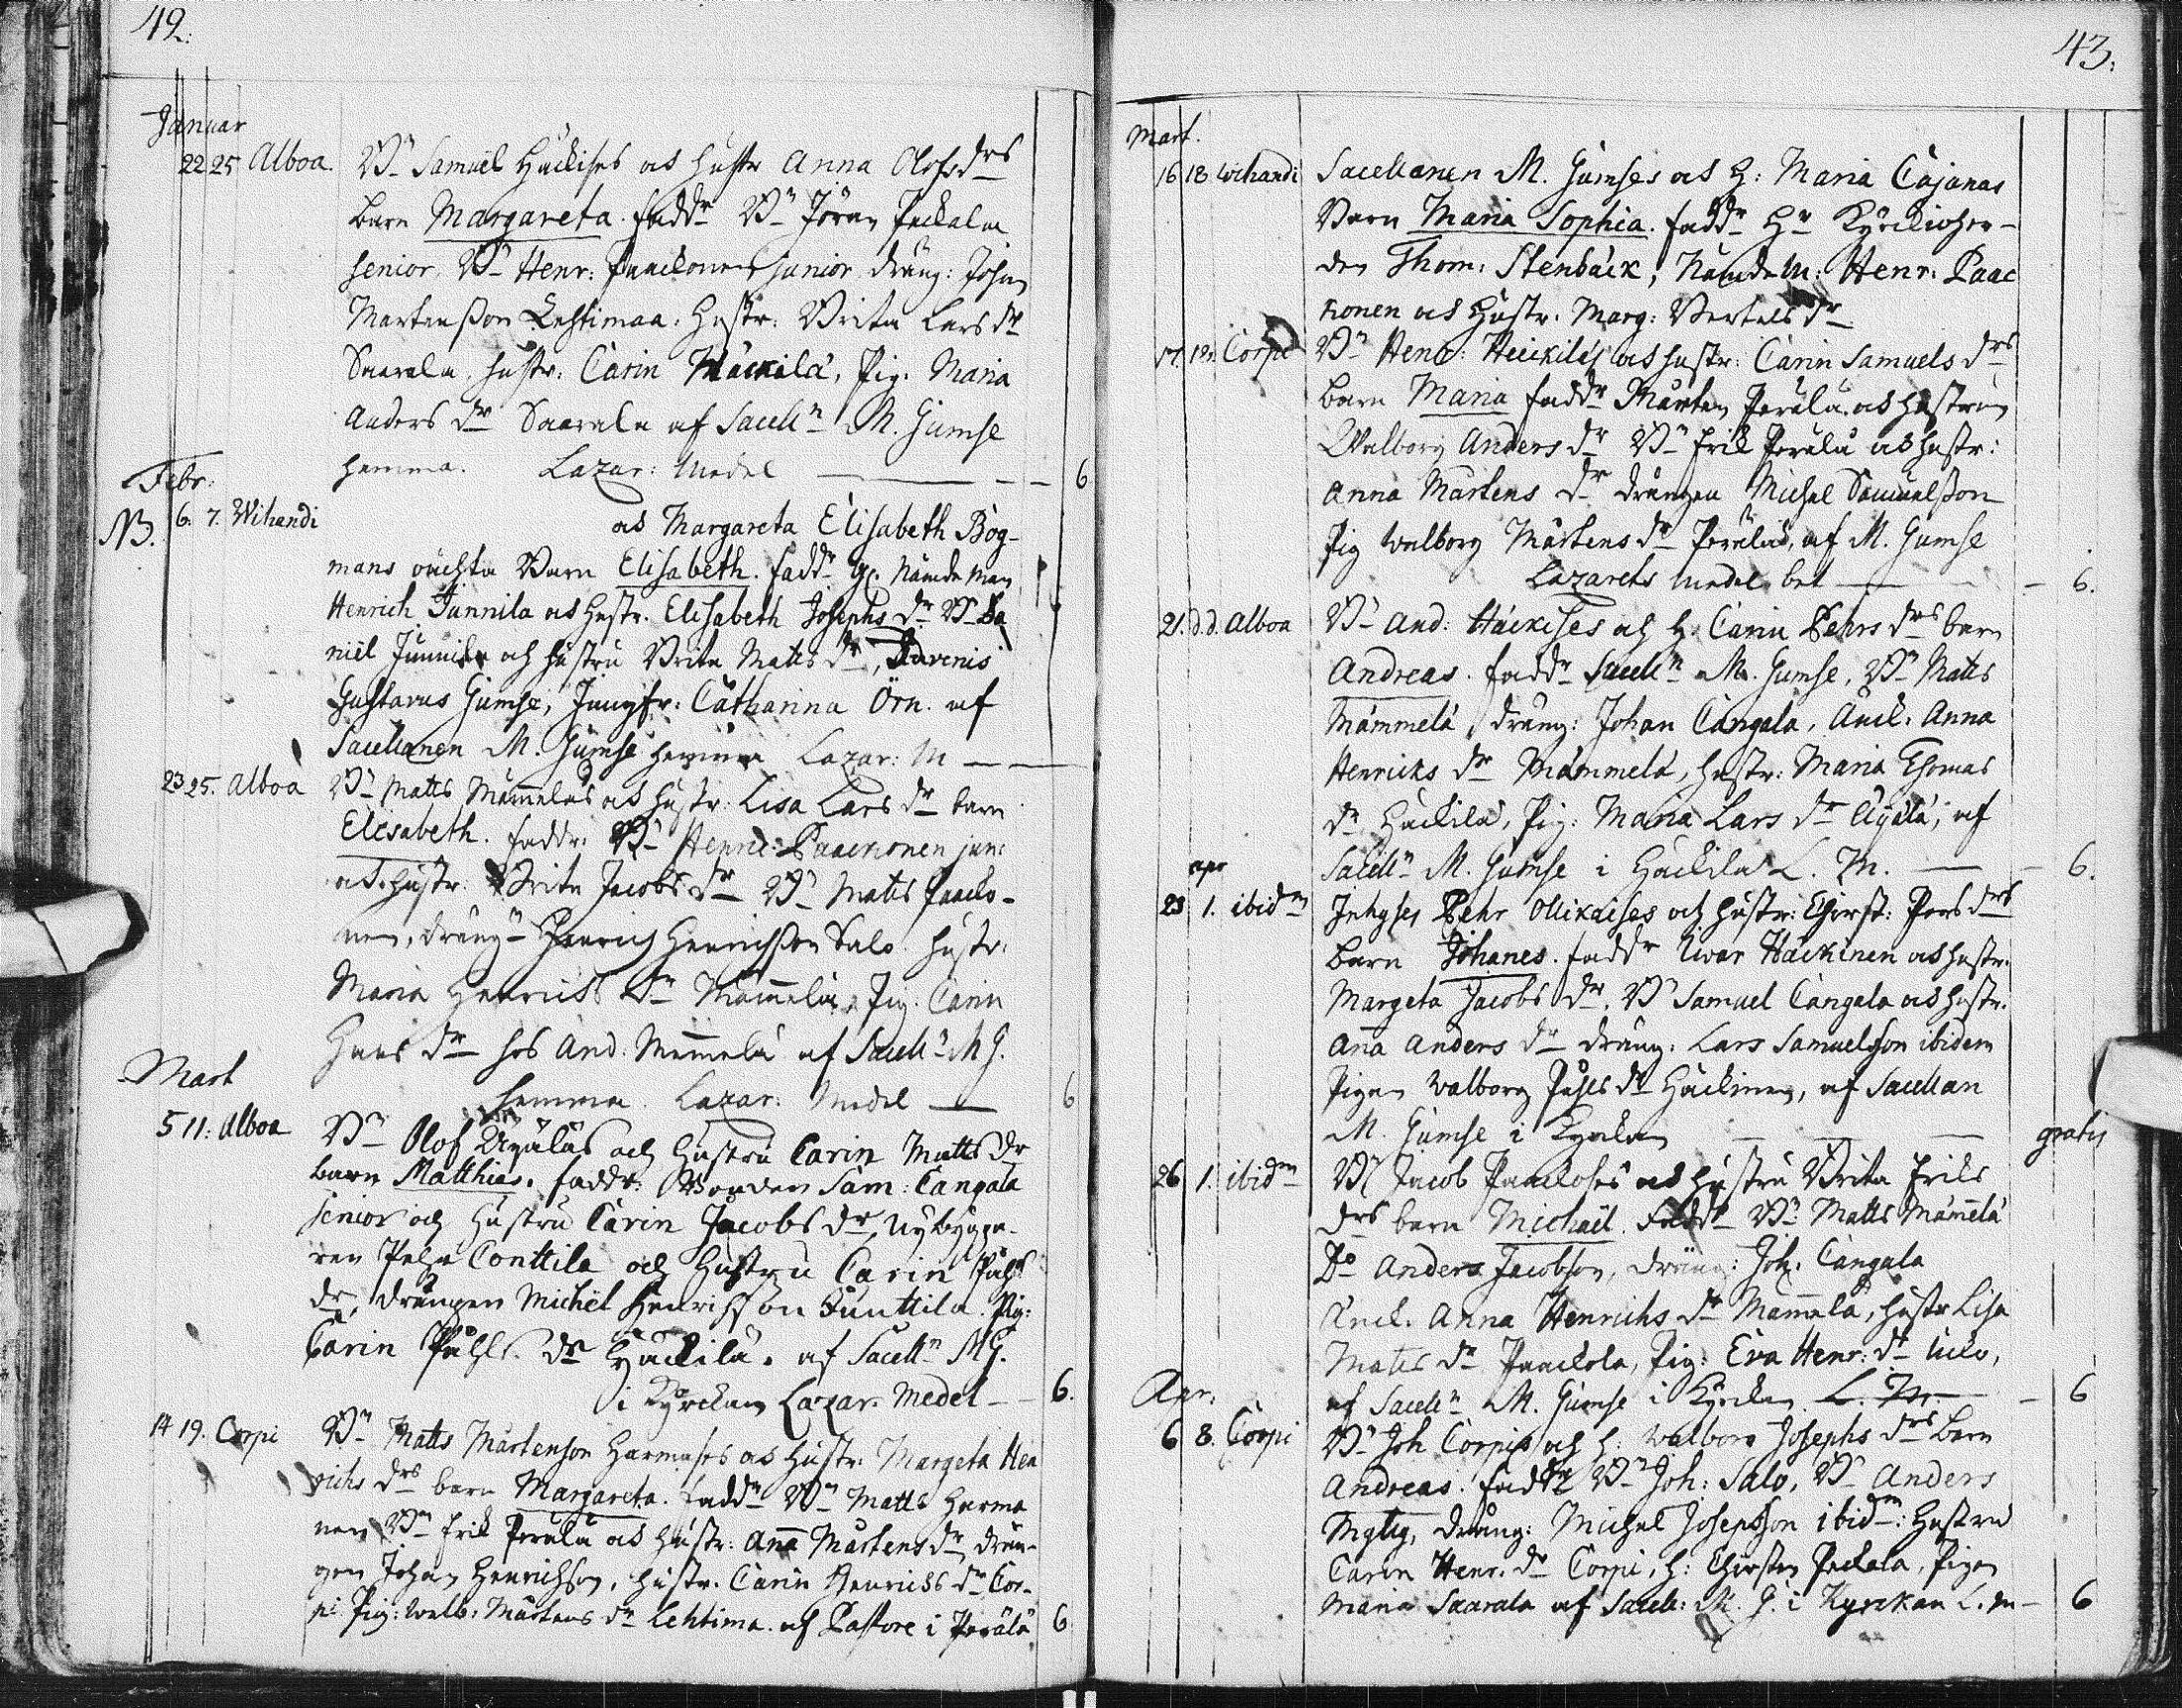 42.
Januar
22 25 Alboa. Bn Samuel Häckises och hustr Anna Olofsdrs
barn Margareta. faddr Bn Jöran Peckala
senior, Bn Henr: Paackonen junior dräng: Johan
Martensson Lehtimaa. Hustr: Brita Lars dr
Saarela, hustr: Carin Mäckilä, Pig. Maria
Anders dr Saarela af Sacelln M. Gumse
hemma. Lazar: Medel — 6
Febr:
NB. 6. 7. Wihandi och Margareta Elisabeth Bög-
mans oächta Barn Elisabeth. faddr Nämde Man
Henrich Junnila och Hustr. Elisabeth Josephs dr Bn Da
niel Junnila och hustru Brita Matts dr,
Gustavus Gumse, Jungfr: Catharina Örn. af
Sacellanen M. Gumse hemma Lazar: M —
23 25. Alboa Bn Matts Mämmeläs och hustr: Lisa Lars dr barn
Elisabeth. faddr: Bn Henric: Paackonen jun:
och hustr: Brita Jacobs dr Bn Matts Paacko-
nen, dräng Henrich Henrichsson Salo. hustr:
Maria Henrichs dr Mämmelä, Pig: Carin
Hans dr hos And. Memmelä af Sacelln M G.
hemma. Lazar: Medel — 6
Mart
5 11: Alboa Bn Olof Äyäläs och Hustru Carin Matts dr
barn Matthias. faddr: Bonden Sam: Cangala
senior och Hustru Carin Jacobs dr, Nybygga-
ren Påhl Conttila och Hustru Carin Påhls
dr, drängen Michel Henrichsson Junttila. Pig:
Carin Påhls dr Häckilä. af Sacelln M G.
i Kyrckan Lazar. Medel — 6.
14 19. Corpi Bn Matts Mårtenson Harmases och Hustr: Margeta Hen
richs drs barn Margareta. faddr Bn Matts Harma
nen Bn Erik Perälä och Hustr: Ana Mårtens dr, drän-
gen Johan Henrichson, hustr. Carin Henrichs dr Cor-
pi Pig: Walb: Mårtens dr Lehtima. af Pastore i Perälä 6
43.
Mart.
16 18 Wihandi Sacellanen M. Gumses och H: Maria Cajanas
Barn Maria Sophia. faddr Hr Kyrckioher-
den Thom: Stenbäck, Nämdem: Henr: Paac
konen och Hustr. Marg: Bertels dr
17. 18. Corpi Bn Henr: Heickiläs och hustr: Carin Samuels drs
barn Maria faddr Mårten Perälä och hustrun
Walborg Anders dr Bn Erik Perälä och hustr:
Anna Mårtens dr drängen Michel Samuelsson
Pig Walborg Mårtens dr Perälä, af M. Gumse
Lazarets medel bet — 6.
21. d.d. Alboa Bn And: Häckises och H: Carin Pehrs drs barn
Andreas. faddr Sacelln M. Gumse, Bn Matts
Mämmelä, dräng: Johan Cangala, Ancil. Anna
Henricks dr Mämmelä, hustr: Maria Thomas
dr Häckilä, Pig: Maria Lars dr Äyälä, af
Sacelln M. Gumse i Häckilä L. M. — 6.
apr
23 1. ibidm Inhyses Pehr Ollikaises och hustr: Christ: Pers drs
barn Johanes. faddr Iwar Häckinen och hustr.
Margeta Jacobs dr. Bn Samuel Cangala och hustr.
Ana Anders dr dräng. Lars Samuelsson ibidem
Pigan Walborg Påhls dr Häckinen, af Sacellan
M. Gumse i Kyrckan — gratis
26 1. ibidm Bn Jacob Paackoses och hustru Brita Eriks
drs barn Michaël. Faddr Bn Matts Mämelä
Do Anders Jacobson, dräng: Joh. Cangala
Ancil. Anna Henrichs dr Mamelä, hustr Lisa
Matts dr Paackola, Pig: Eva Henr: dr
af Sacelln M. Gumse i Kyrckan L. M. — 6
Apr.
6 8. Corpi Bn Joh Corpis och h: Walborg Josephs drs barn
Andreas. faddr Bn Joh: Salo, Bn Anders
dräng: Michel Josephsson ibidm: Hustru
Carin Henr. dr Corpi, h: Chirstin Peckala, Pigan
Maria Saarala af Sacell: M. G. i Kyrckan L. M — 6